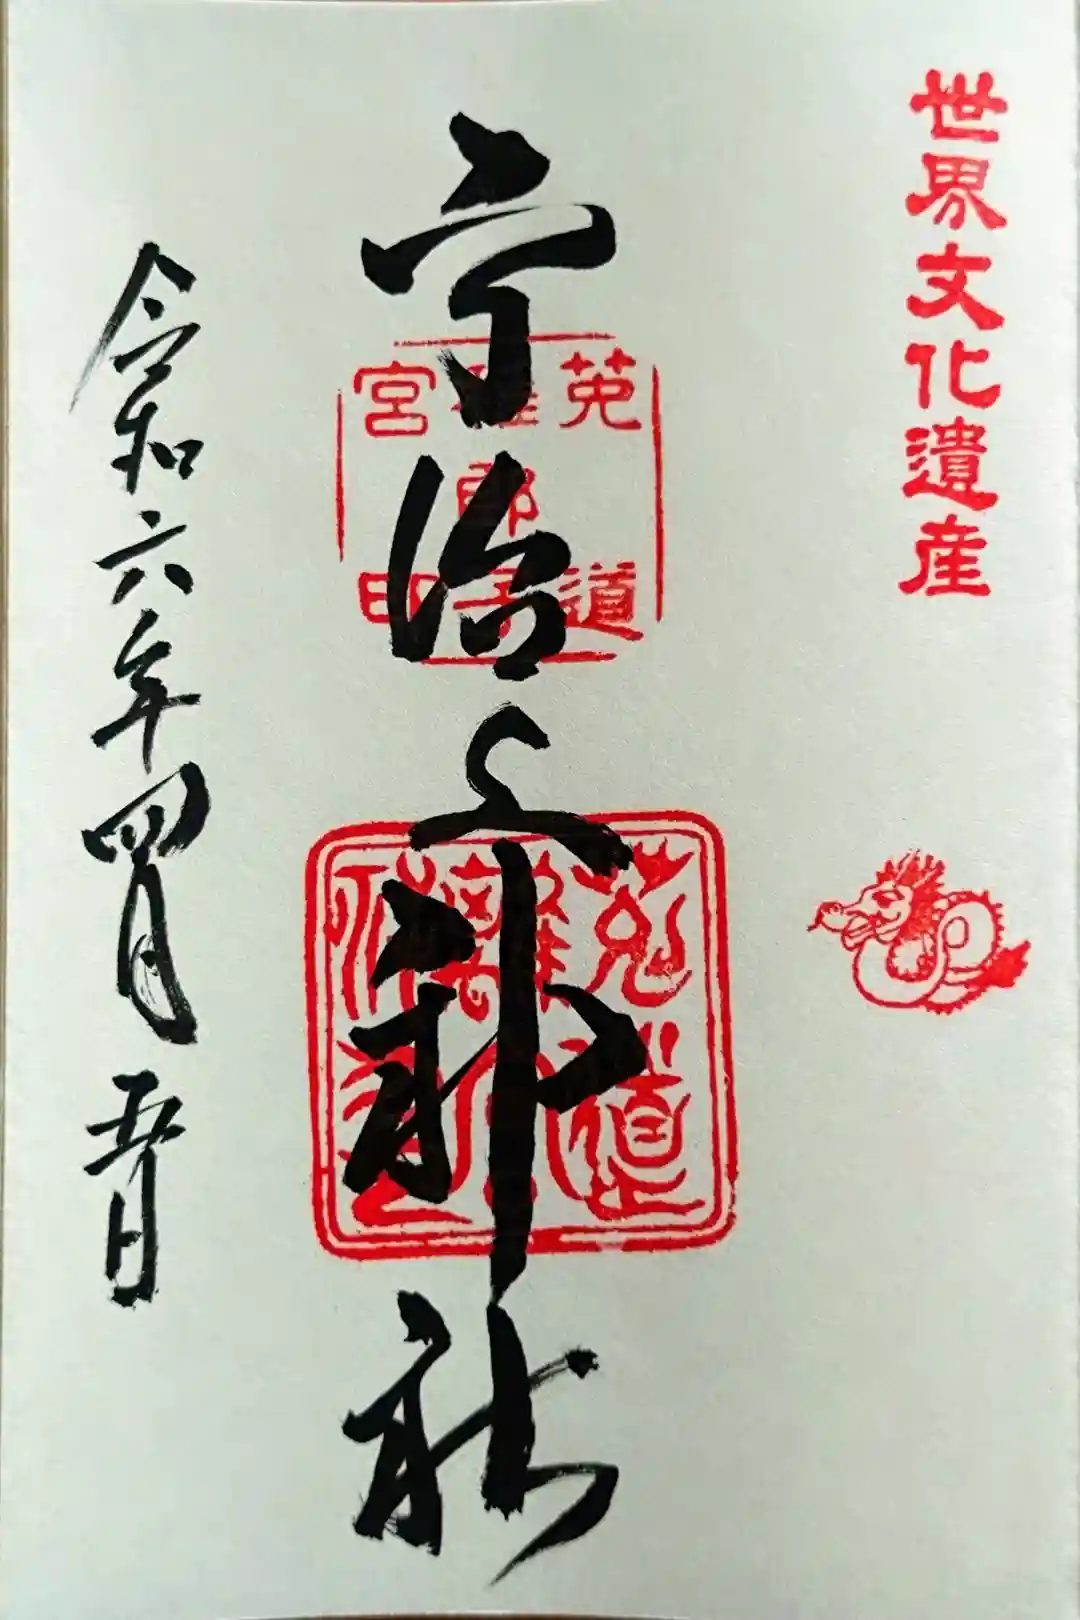 世界文化遺産
宇治上神社
菟道
稚郎子
宮印
令和六年四月五日